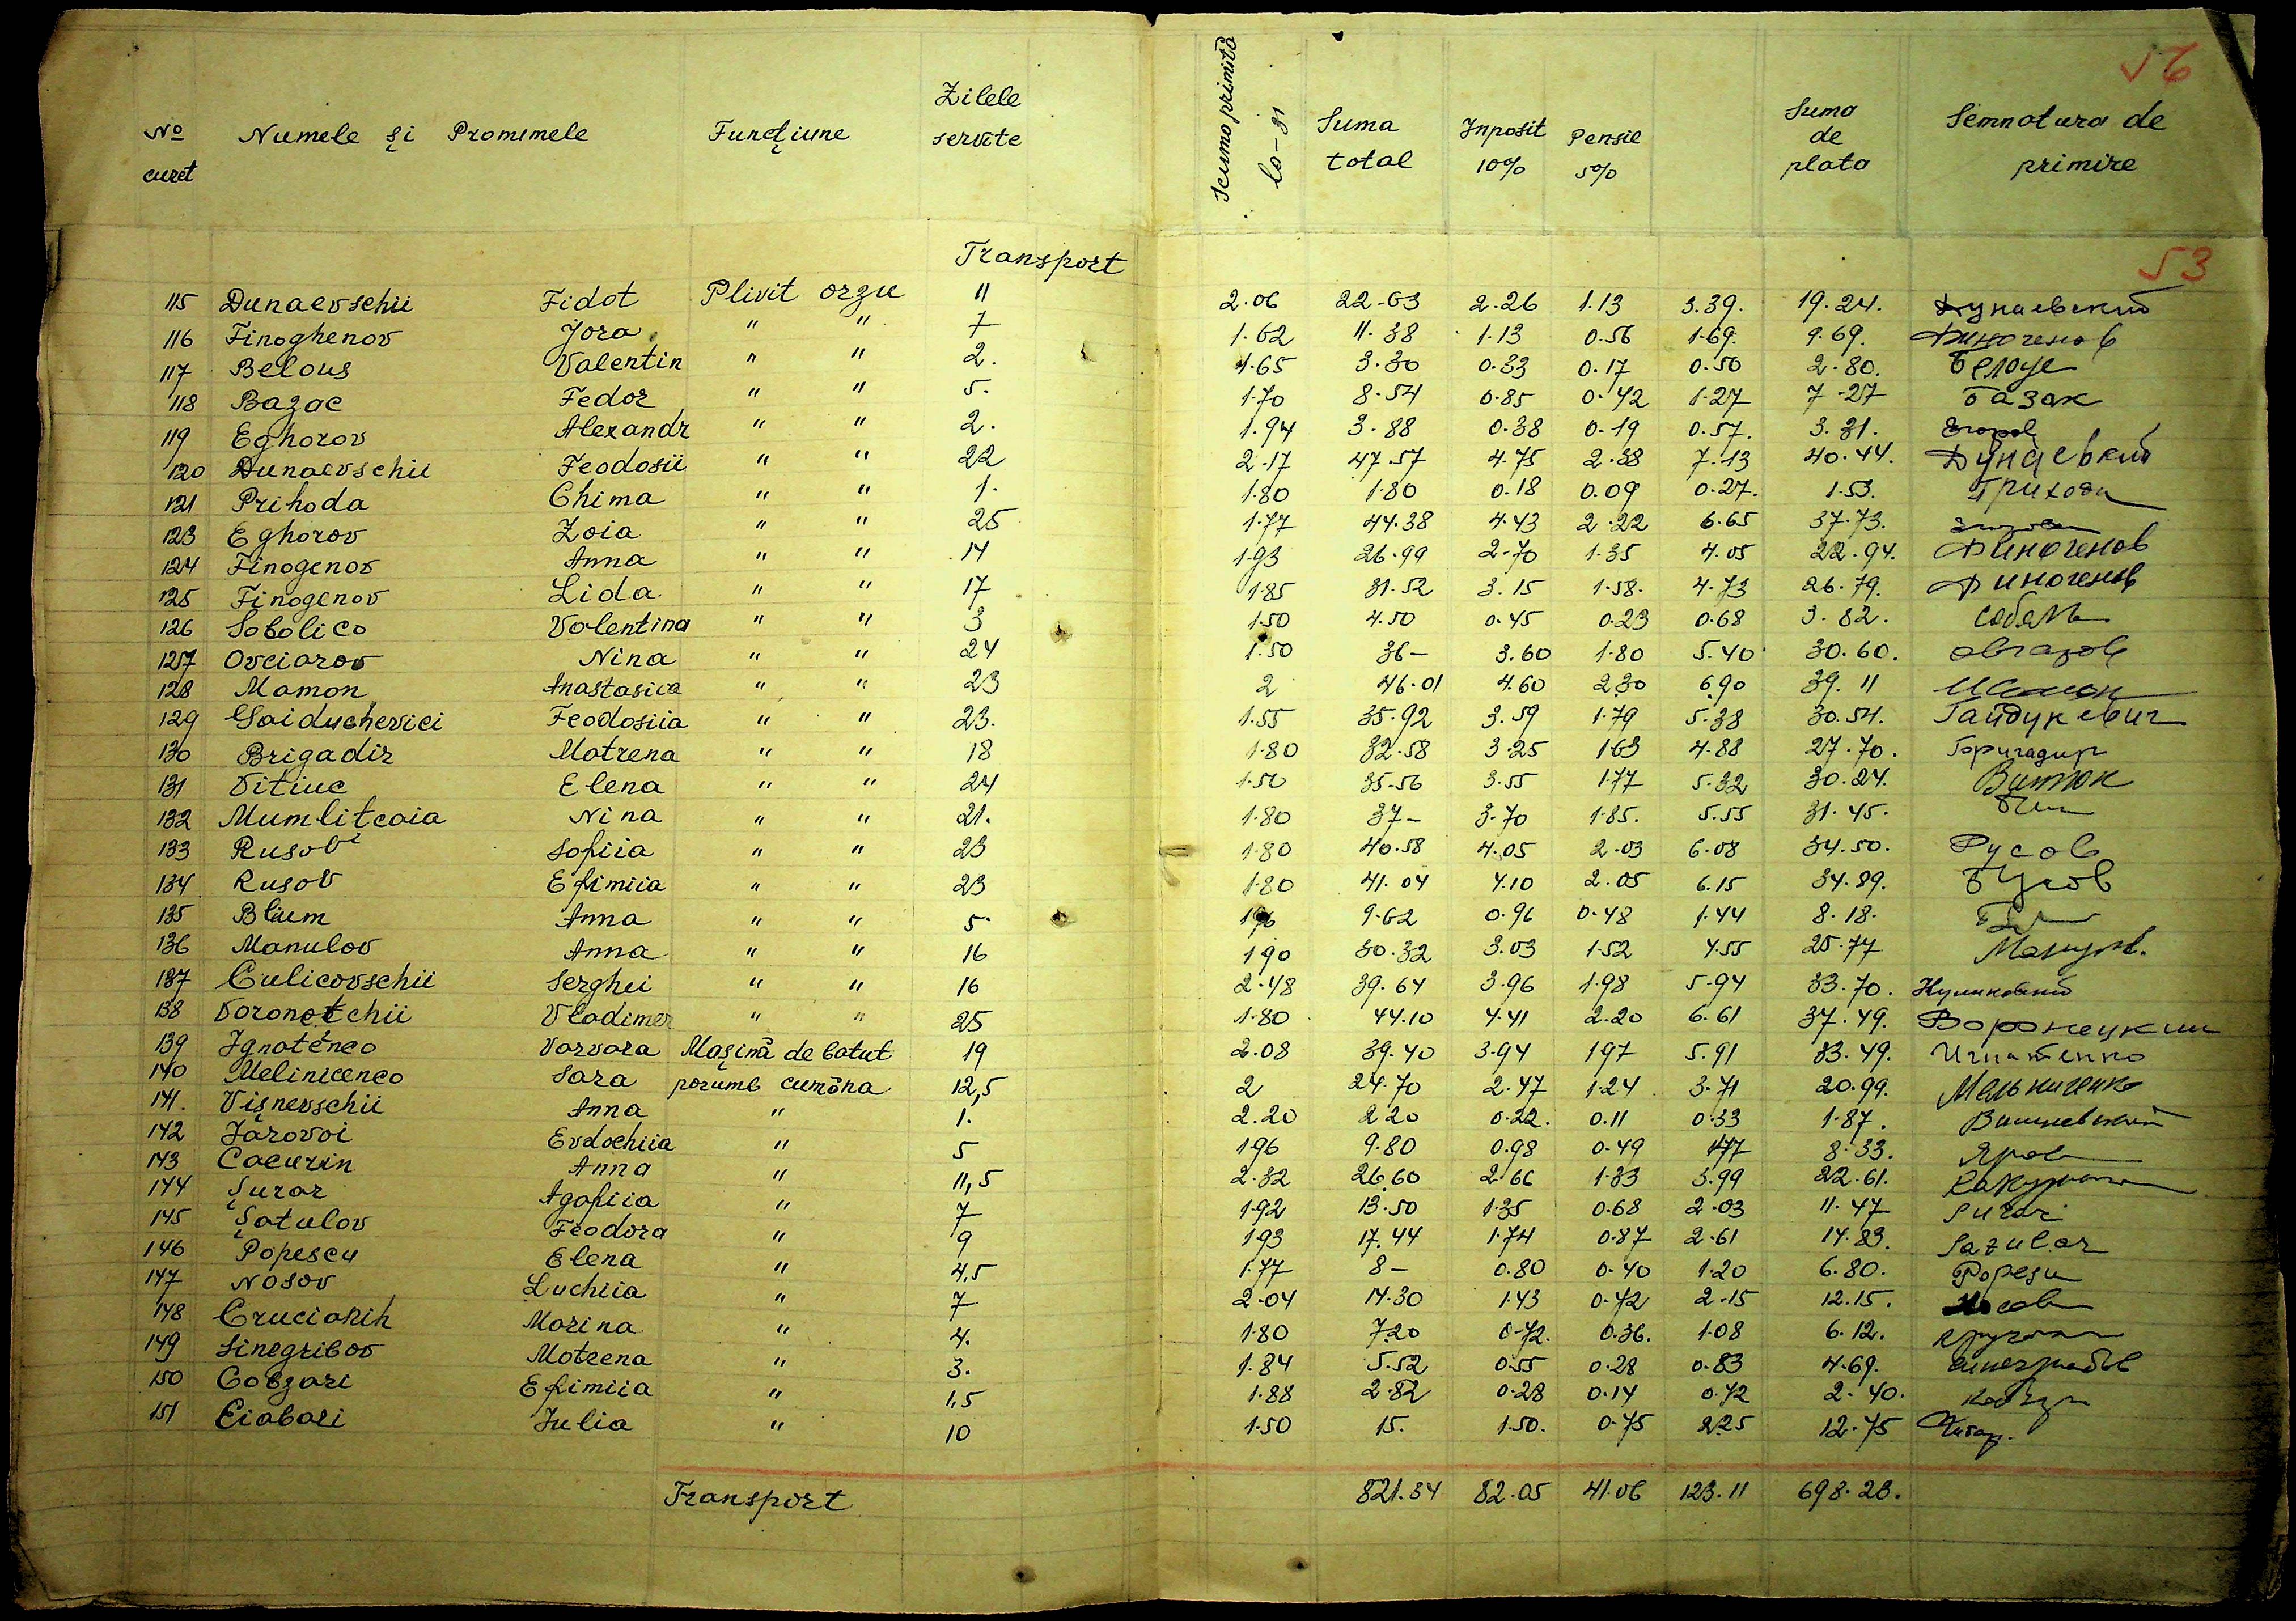 56
№ curet Numele și Promimele Funcțiune Zilele servite Scuma primită la-zi Suma total Inposit 10% Pensie 5% Suma de plata Semnatura de primire
Transport 53
115 Dunaevschii Fidot Plivit orzu 11 2.06 22-63 2.26 1.13 3.39. 19.24. Дунаевский
116 Finoghenov Jora " " 7 1.62 11.38 1.13 0.56 1.69. 9.69. Финогенов
117 Belous Valentin " " 2. 1.65 3.30 0.33 0.17 0.50 2.80. Белоус
118 Bazac Fedor " " 5. 1.70 8.54 0.85 0.42 1.27 7.27 Базак
119 Eghorov Alexandr " " 2. 1.94 3.88 0.38 0.19 0.57. 3.31. Егоров
120 Dunaevschii Feodosii " " 22 2.17 47.57 4.75 2.38 7.13 40.44. Дунаевский
121 Prihoda Chima " " 1. 1.80 1.80 0.18 0.09 0.27. 1.53. Прихода
123 Eghorov Zoia " " 25 1.77 44.38 4.43 2.22 6.65 37.73.
124 Finogenov Anna " " 14 1.93 26.99 2.70 1.35 4.05 22.94. Финогенов
125 Finogenov Lida " " 17 1.85 31.52 3.15 1.58. 4.73 26.79. Финогенов
126 Sobolico Valentina " " 3 1.50 4.50 0.45 0.23 0.68 3.82.
127 Ovciarov Nina " " 24 1.50 36- 3.60 1.80 5.40 30.60. Овчаров
128 Mamon Anastasiia " " 23 2 46.01 4.60 2.30 6.90 39.11
129 Gaiduchevici Feodosiia " " 23. 1.55 35.92 3.59 1.79 5.38 30.54. Гайдукевич
130 Brigadir Motrena " " 18 1.80 32.58 3.25 1.63 4.88 27.70. Бригадир
131 Vitiuc Elena " " 24 1.50 35.56 3.55 1.77 5.32 30.24. Витюк
132 Mumlitcaia Nina " " 21. 1.80 37- 3.70 1.85. 5.55 31.45.
133 Rusov Sofiia " " 23 1.80 40.58 4.05 2.03 6.08 34.50. Русов
134 Rusov Efimiia " " 23 1.80 41.04 4.10 2.05 6.15 34.89. Русов
135 Blium Anna " " 5. 9.62 0.96 0.48 1.44 8.18.
136 Manulov Anna " " 16 1.90 30.32 3.03 1.52 4.55 25.77 Манулов.
137 Culicovschii Serghei " " 16 2.48 39.64 3.96 1.98 5.94 33.70. Куликовский
138 Voronetchii Vladimer " " 25 1.80 44.10 4.41 2.20 6.61 37.49. Воронецкии
139 Ignatenco Varvara Mașină de batut 19 2.08 39.40 3.94 1.97 5.91 33.49. Игнатенко
140 Melinicenco Sara porumb cumâna 12,5 2 24.70 2.47 1.24 3.71 20.99. Мельниченко
141. Vișnevschii Anna " 1. 2.20 2.20 0.22. 0.11 0.33 1.87. Вишневский
142 Jarovoi Evdochiia " 5 1.96 9.80 0.98 0.49 1.47 8.33.
143 Cacurin Anna " 11,5 2.32 26.60 2.66 1.33 3.99 22.61.
144 Șurar Agafiia " 7 1.92 13.50 1.35 0.68 2.03 11.47 Surar
145 Șatulov Feodora " 9 1.93 17.44 1.74 0.87 2.61 14.83.
146 Popescu Elena " 4,5 1.77 8- 0.80 0.40 1.20 6.80. Popescu
147 Nosov Luchiia " 7 2.04 14.30 1.43 0.72 2.15 12.15. Носов
148 Crucianih Marina " 4. 1.80 7.20 0.72. 0.36. 1.08 6.12.
149 Sinegribov Motrena " 3. 1.84 5.52 0.55 0.28 0.83 4.69. Синегрибов
150 Cobzari Efimiia " 1,5 1.88 2.82 0.28 0.14 0.42 2.40.
151 Ciabari Julia " 10 1.50 15. 1.50. 0.75 2.25 12.75
Transport 821.34 82.05 41.06 123.11 698.23.